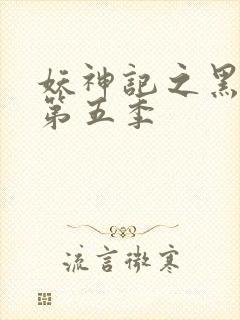 妖神记之黑
第五季
流言微寒